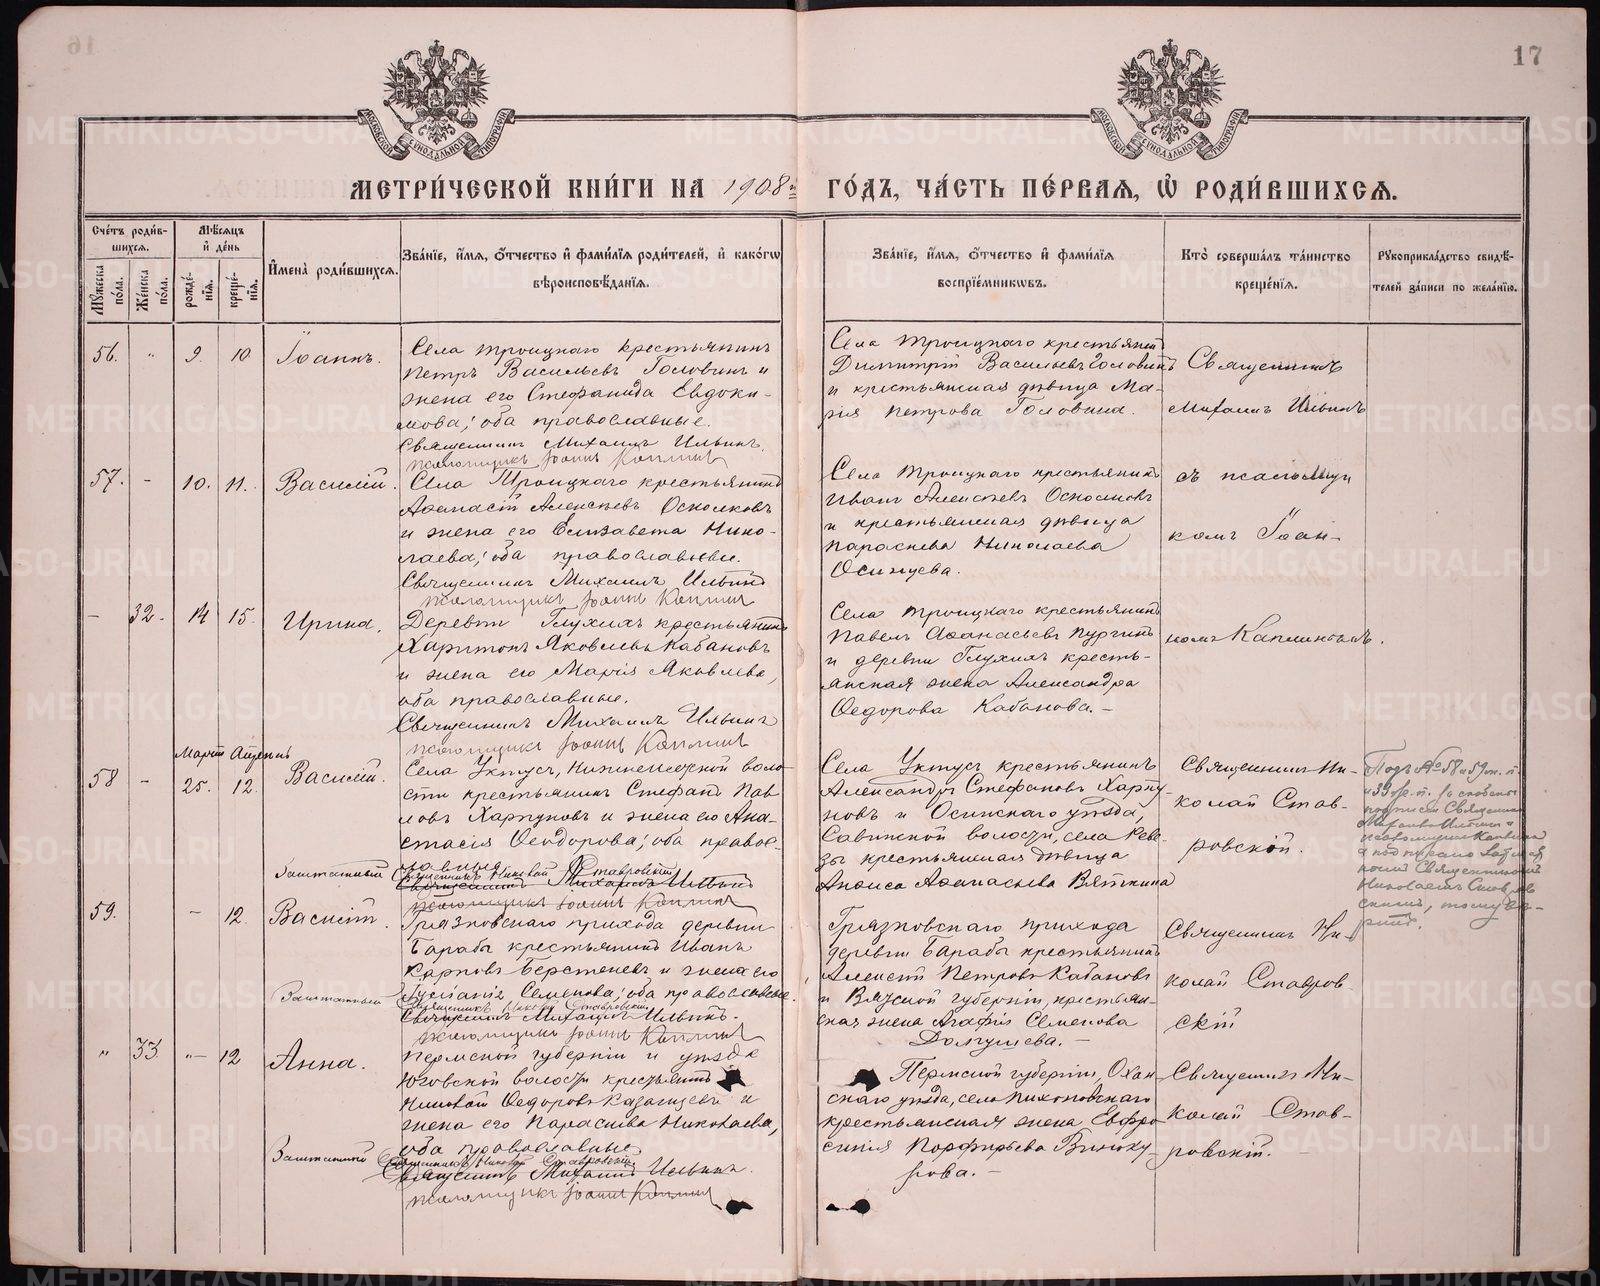 17
МОСКОВСКОЙ СѴНОДАЛЬНОЙ ТИПОГРАФІИ
МОСКОВСКОЙ СѴНОДАЛЬНОЙ ТИПОГРАФІИ
МЕТРИ́ЧЕСКОЙ КНИ́ГИ НА 1908й ГО́ДЪ, ЧА́СТЬ ПЕ́РВАЯ, Ѡ҆ РОДИ́ВШИХСѦ.
Сче́тъ роди́в-
шихсѧ.
Мꙋ́жеска по́ла.
Же́нска по́ла.
Мѣ́сѧцъ
и҆ де́нь
рожде́-
нїѧ.
креще́-
нїѧ.
И҆мена̀ роди́вшихсѧ.
Зва́нїе, и҆́мѧ, ѻ҆́тчество и҆ фамѝлїѧ роди́телей, и҆ како́гѡ
вѣроисповѣ́данїѧ.
Зва́нїе, и҆́мѧ, ѻ҆́тчество и҆ фамѝлїѧ
воспрїе́мникѡвъ.
Кто̀ соверша́лъ та́инство
креще́нїѧ.
Рꙋкоприкла́дство свидѣ́-
телей за́писи по жела́нїю.
56. " 9. 10. Іоаннъ.
Села Троицкаго крестьянинъ
Петръ Васильевъ Головинъ и
жена его Стефанида Евдоки-
мова; оба православные.
Священникъ Михаилъ Ильинъ.
Псаломщикъ Іоаннъ Каплинъ
Села Троицкаго крестьянинъ
Димитрій Васильевъ Головинъ
и крестьянская дѣвица Ма-
рія Петрова Головина.
Священникъ
Михаилъ Ильинъ
57. - 10. 11. Василій.
Села Троицкаго крестьянинъ
Аѳанасій Алексѣевъ Осколковъ
и жена его Елизавета Нико-
лаева; оба православные.
Священникъ Михаилъ Ильинъ
Псаломщикъ Іоаннъ Каплинъ
Села Троицкаго крестьянинъ
Иванъ Алексѣевъ Осколковъ
и крестьянская дѣвица
Параскева Николаева
Осинцева.
съ псаломщи
комъ Іоан-
- 32. 14 15. Ирина.
Деревни Глухихъ крестьянинъ
Харитонъ Яковлевъ Кабановъ
и жена его Марія Яковлева,
оба православные.
Священникъ Михаилъ Ильинъ
Псаломщикъ Іоаннъ Каплинъ
Села Троицкаго крестьянинъ
Павелъ Аѳанасьевъ Пургинъ
и деревни Глухихъ кресть-
янская жена Александра
Ѳедорова Кабанова. -
номъ Каплинымъ.
Мартъ Апрель
58 - 25. 12. Василій.
Села Уктусъ, Нижнеисетской воло-
сти крестьянинъ Стефанъ Пав
ловъ Харпуновъ и жена его Ана-
стасія Ѳеодорова; оба право-
славные
Заштатный Священникъ Николай Ставровскій
Священникъ Михаилъ Ильинъ
Псаломщикъ Іоаннъ Каплинъ
Села Уктусъ крестьянинъ
Александръ Стефановъ Харпу-
новъ и Осинскаго уѣзда,
Савинской волости, села Рев-
зы крестьянская дѣвица
Анѳиса Аѳанасьева Вяткина
Священникъ Ни-
колай Став-
ровскій.
59. - 12. Василій.
Грязновскаго прихода деревни
Бараба крестьянинъ Иванъ
Карповъ Берстеневъ и жена его
Іустинія Семенова; оба православные.
Заштатный Священникъ Николай Ставровскій
Священникъ Михаилъ Ильинъ.
Псаломщикъ Іоаннъ Каплинъ
Грязновскаго прихода
деревни Барабы крестьянинъ
Алексѣй Петровъ Кабановъ
и Вятской губерніи, крестьян-
ская жена Агафія Семенова
Долгушева. -
Священникъ Ни-
колай Ставров-
скій
" 33 "- 12 Анна.
Пермской губерніи и уѣзда
Юговской волости крестьянинъ
Николай Ѳедоровъ Казанцевъ и
жена его Параскева Николаева,
оба православные
Заштатный Священникъ Николай Ставровскій
Священникъ Михаилъ Ильинъ.
Псаломщикъ Іоаннъ Каплинъ
Пермской губерніи, Охан-
скаго уѣзда, села
крестьянская жена Евфро
синія Порфирьева Виноку-
рова. -
Священникъ Ни-
колай Став-
ровскій.
Подъ №58 и 59 м. п.
и 33
подписи Священника
Михаила Ильина и
псаломщика Каплина
Священникомъ
Николаемъ Ставров
скимъ,